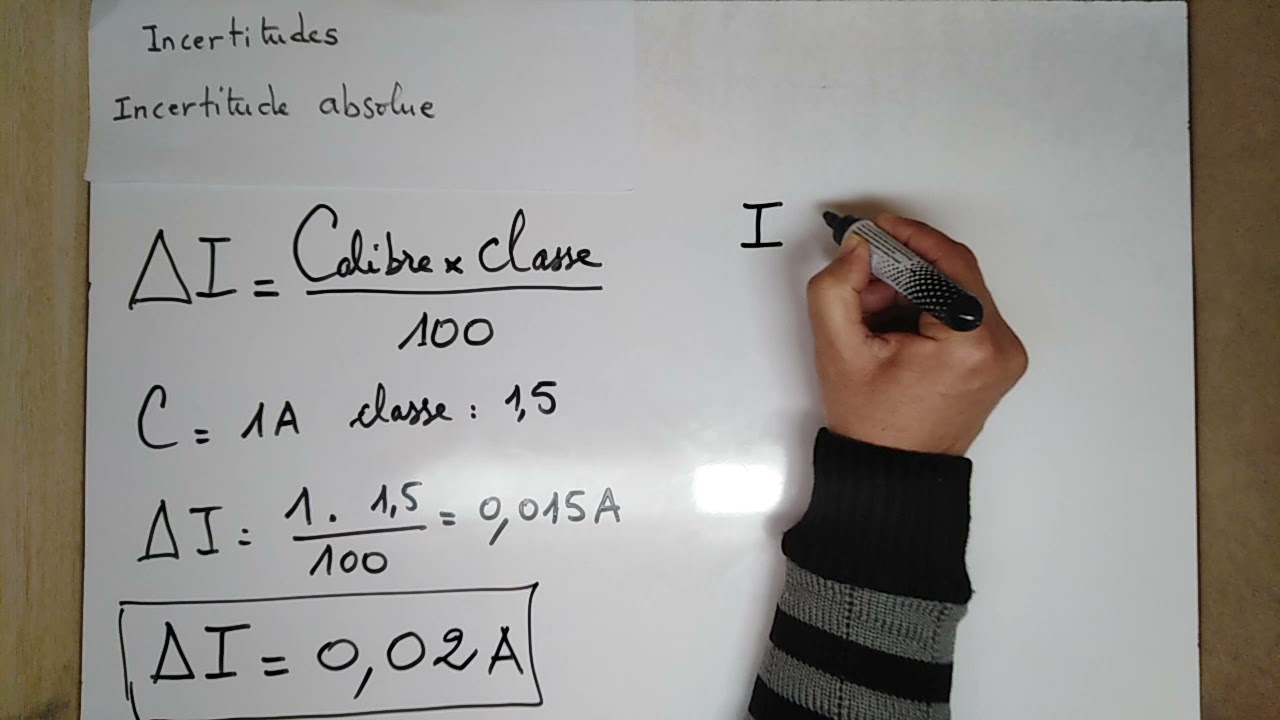 Incertitudes
Incertitude absolue
ΔI = Calibre x classe
100
C = 1A classe : 1,5
ΔI = 1 . 1,5 = 0,015A
100
ΔI = 0,02A
I